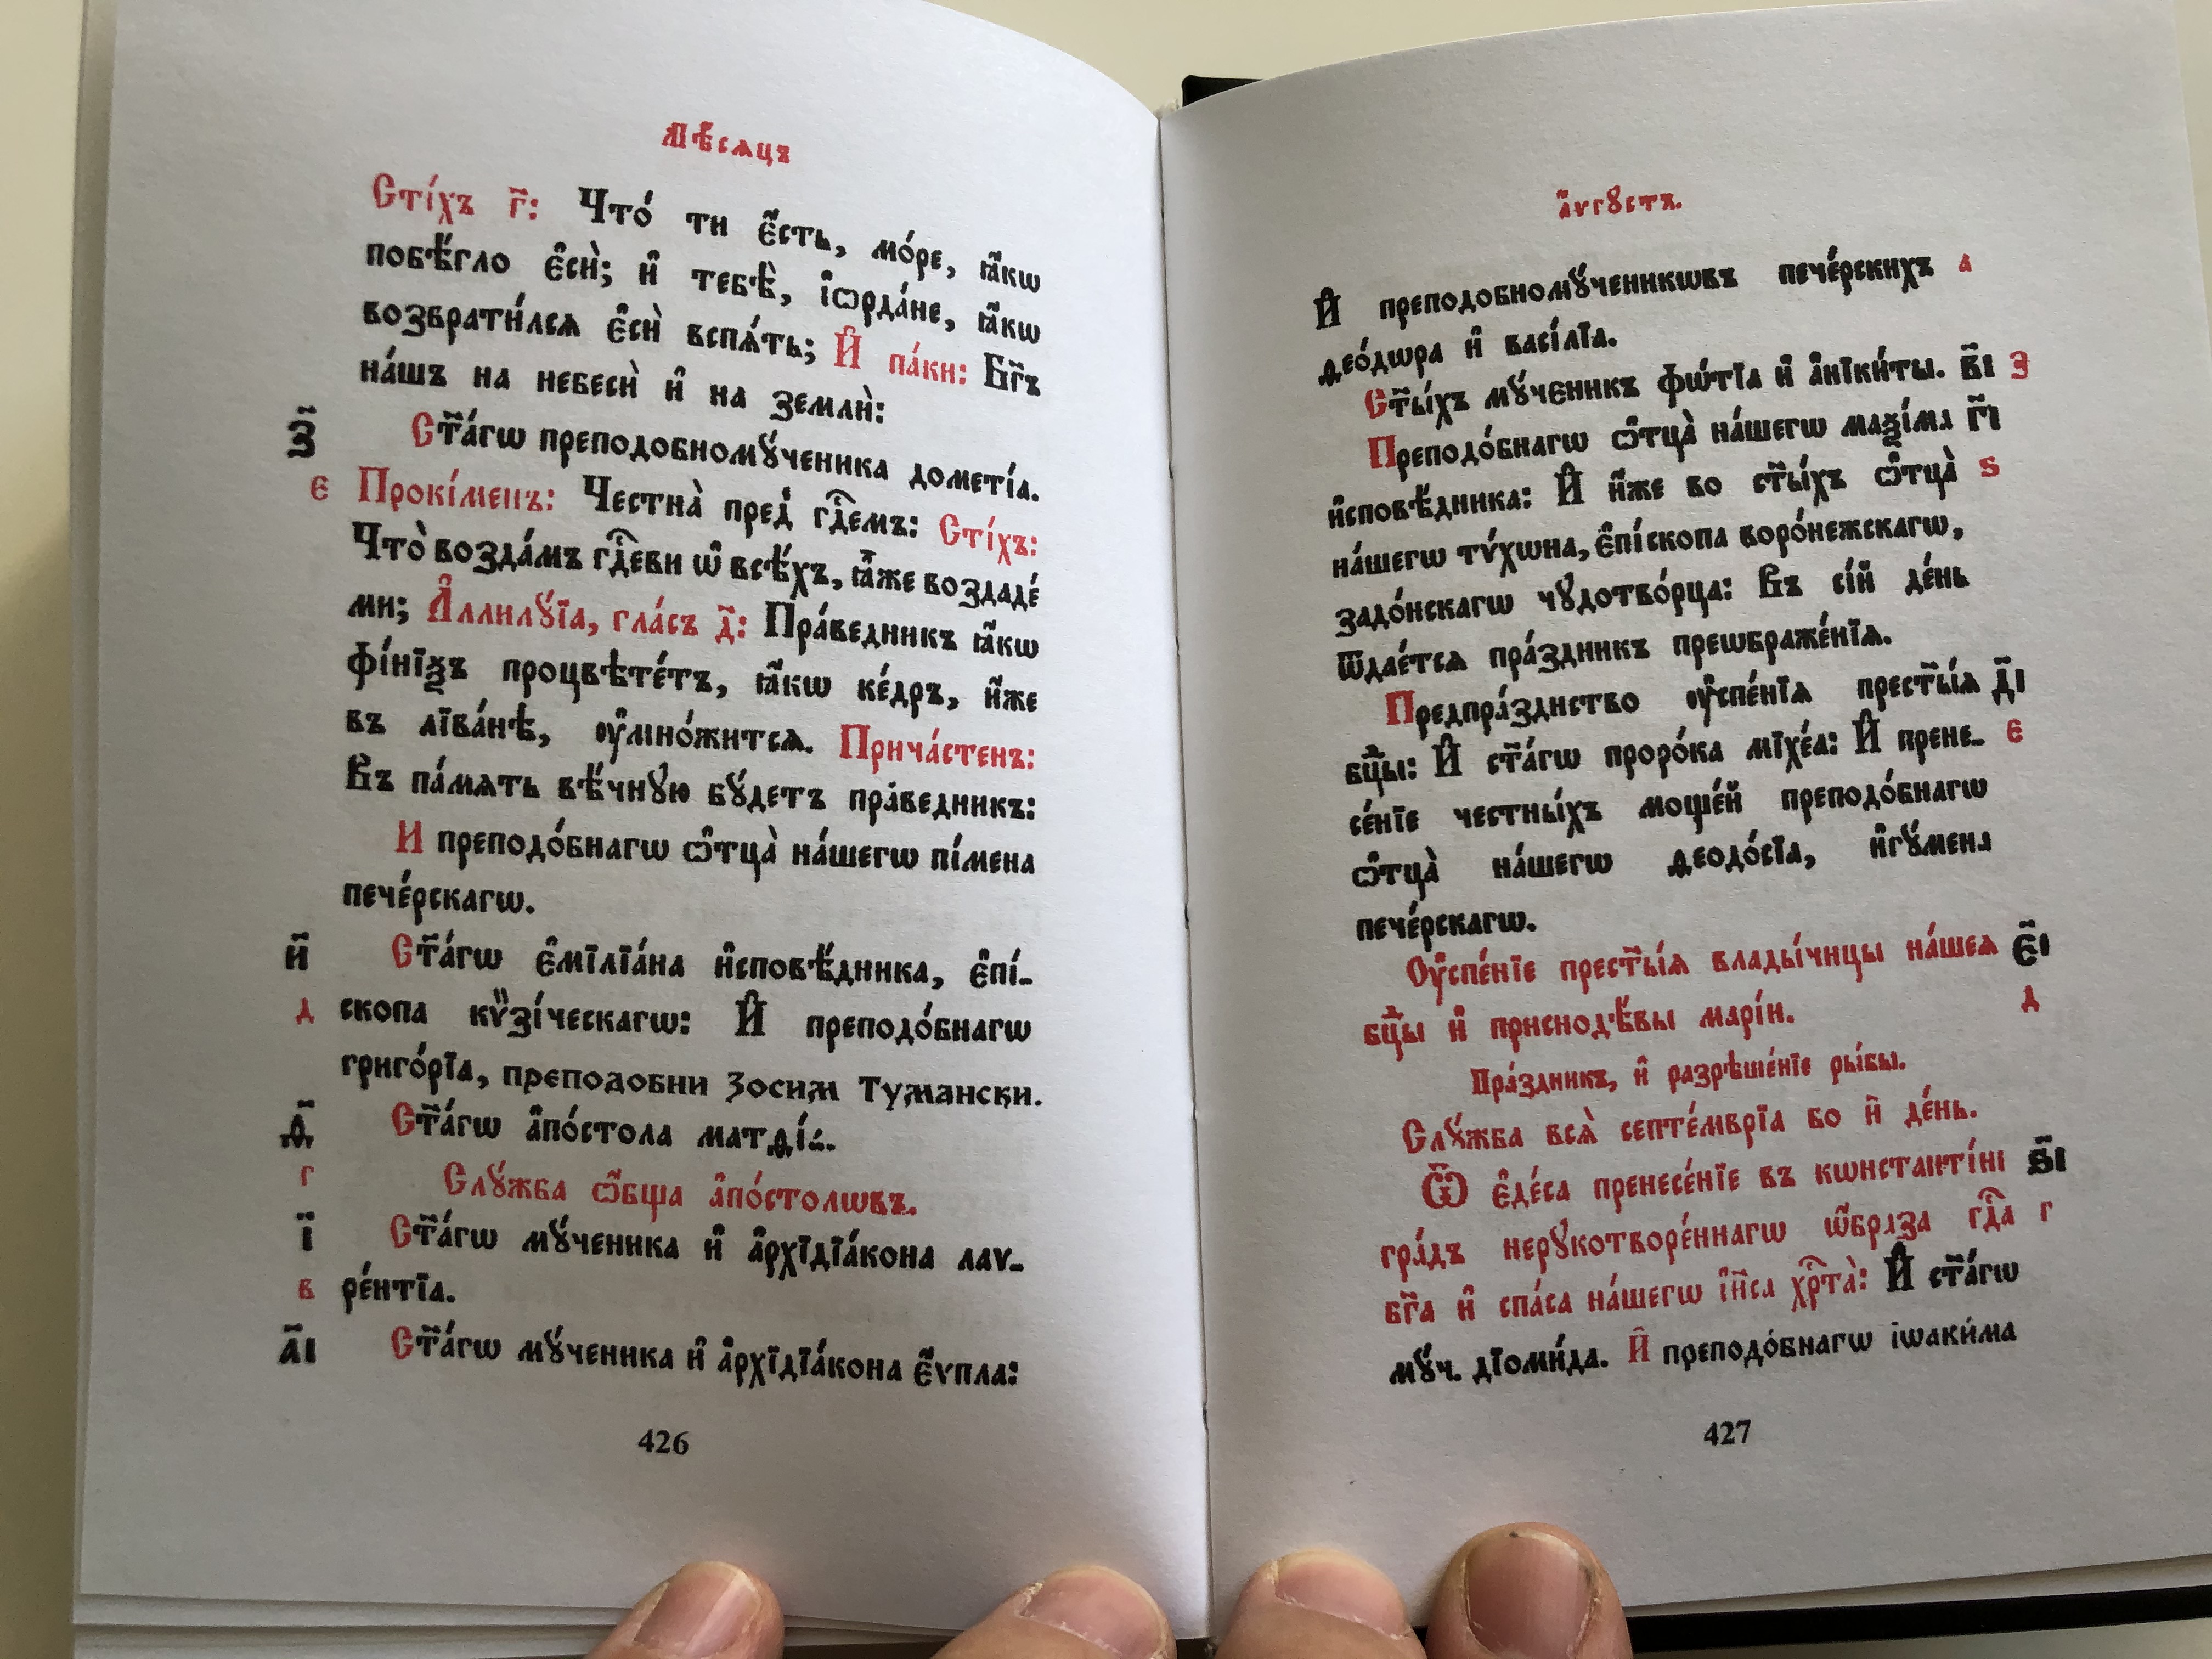 Мѣ́сѧцъ
Стíхъ г҃: Что́ ти є҆́сть, мо́ре, ꙗ҆́кѡ
побѣ́гло є҆сѝ; и҆ тебѣ̀, і҆ѻрда́не, ꙗ҆́кѡ
возврати́лсѧ є҆сѝ вспѧ́ть; И҆ па́ки: Бг҃ъ
на́шъ на небесѝ и҆ на землѝ:
з҃ Ст҃а́гѡ преподобномꙋ́ченика дометі́а.
є Прокі́менъ: Честна̀ пред̾ гдⷭ҇емъ: Сті́хъ:
Что̀ возда́мъ гдⷭ҇еви ѡ҆ всѣ́хъ, ꙗ҆̀же воздаде́
ми; А҆ллилꙋ́їа, гла́съ д҃: Пра́ведникъ ꙗ҆́кѡ
фі́нїѯъ процвѣте́тъ, ꙗ҆́кѡ ке́дръ, и҆́же
въ лїва́нѣ, ᲂу҆мно́житсѧ. Прича́стенъ:
Въ па́мѧть вѣ́чнꙋю бꙋ́детъ пра́ведникъ:
И преподо́бнагѡ ѻ҆тца̀ на́шегѡ пі́мена
пече́рскагѡ.
и҃ Ст҃а́гѡ є҆мїлїа́на и҆сповѣ́дника, є҆пі́-
д скопа кѷзі́ческагѡ: И҆ преподо́бнагѡ
григо́рїа, преподобни Зосим Тумански.
ѳ҃ Ст҃а́гѡ а҆по́стола матѳі́а.
г Слꙋ́жба ѻ҆́бща а҆по́столѡвъ.
ї҃ Ст҃а́гѡ мꙋ́ченика и҆ а҆рхїдїа́кона лаѵ-
в ре́нтїа.
а҃і Ст҃а́гѡ мꙋ́ченика и҆ а҆рхїдїа́кона є҆́ѵпла:
426
а҆́ѵгꙋстъ.
И҆ преподобномꙋ́ченикѡвъ пече́рскихъ а
ѳео́дѡра и҆ васі́лїа.
Ст҃ы́хъ мꙋ́ченикъ фѡ́тїа и҆ а҆нїки́ты. в҃і з
Преподо́бнагѡ ѻ҆тца̀ на́шегѡ маѯі́ма г҃і
и҆сповѣ́дника: И҆ и҆́же во ст҃ы́хъ ѻ҆тца̀ ѕ
на́шегѡ тѵ́хѡна, є҆пі́скопа воро́нежскагѡ,
задо́нскагѡ чꙋдотво́рца: Въ сі́й де́нь
ѿдае́тсѧ пра́здникъ преѡбраже́нїѧ.
Предпра́зднство ᲂу҆спе́нїѧ прест҃ы́ѧ д҃і
бцⷣы: И҆ ст҃а́гѡ проро́ка мїхе́а: И҆ прене- є
се́нїе честны́хъ моще́й преподо́бнагѡ
ѻ҆тца̀ на́шегѡ ѳеодо́сїа, и҆гꙋ́мена
пече́рскагѡ.
Оу҆спе́нїе прест҃ы́ѧ влады́чицы на́шеѧ є҃і
бцⷣы и҆ приснодѣ́вы марі́и. д
Пра́здникъ, и҆ разрѣше́нїе ры́бы.
Слꙋ́жба всѧ̀ септе́мврїа во и҃ де́нь.
Ѿ є҆де́са пренесе́нїе въ кѡнстанті́нь ѕ҃і
гра́дъ нерꙋкотворе́ннагѡ ѡ҆́браза гдⷭ҇а г
бг҃а и҆ спа́са на́шегѡ і҆и҃са хрⷭ҇та̀: И҆ ст҃а́гѡ
мꙋ́ч. дїоми́да. И҆ преподо́бнагѡ іѡаки́ма
427